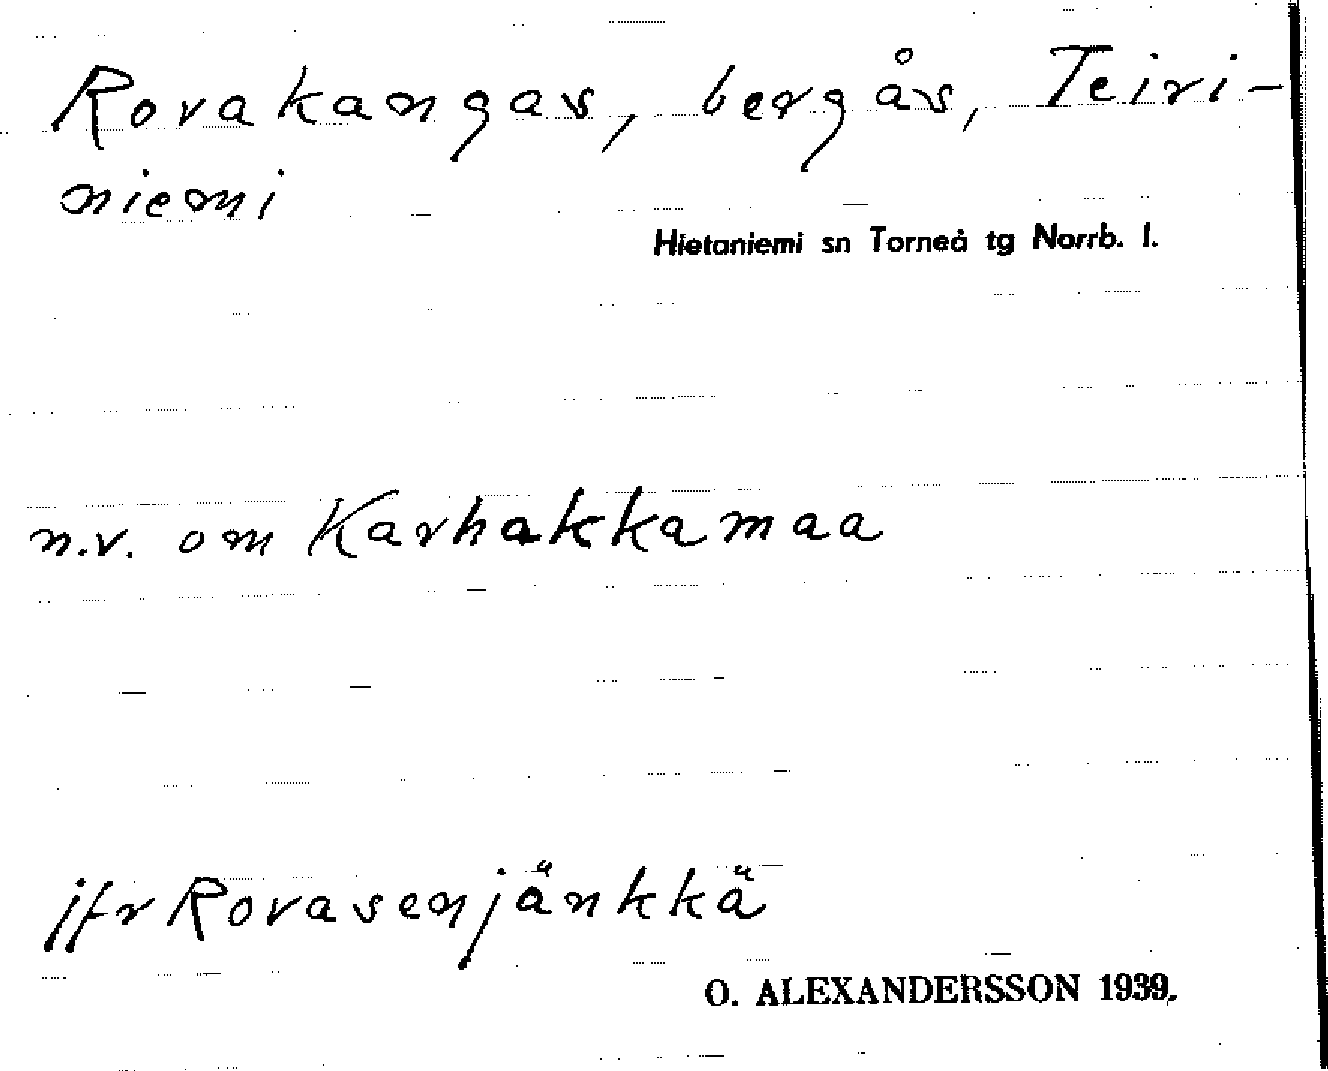 Rovakangas, bergås, Teiri-
niemi
Hietaniemi sn Torneå tg Norrb. l.
n.v. om Karhakkamaa
jfr Rovasenjänkkä
O. ALEXANDERSSON 1939.